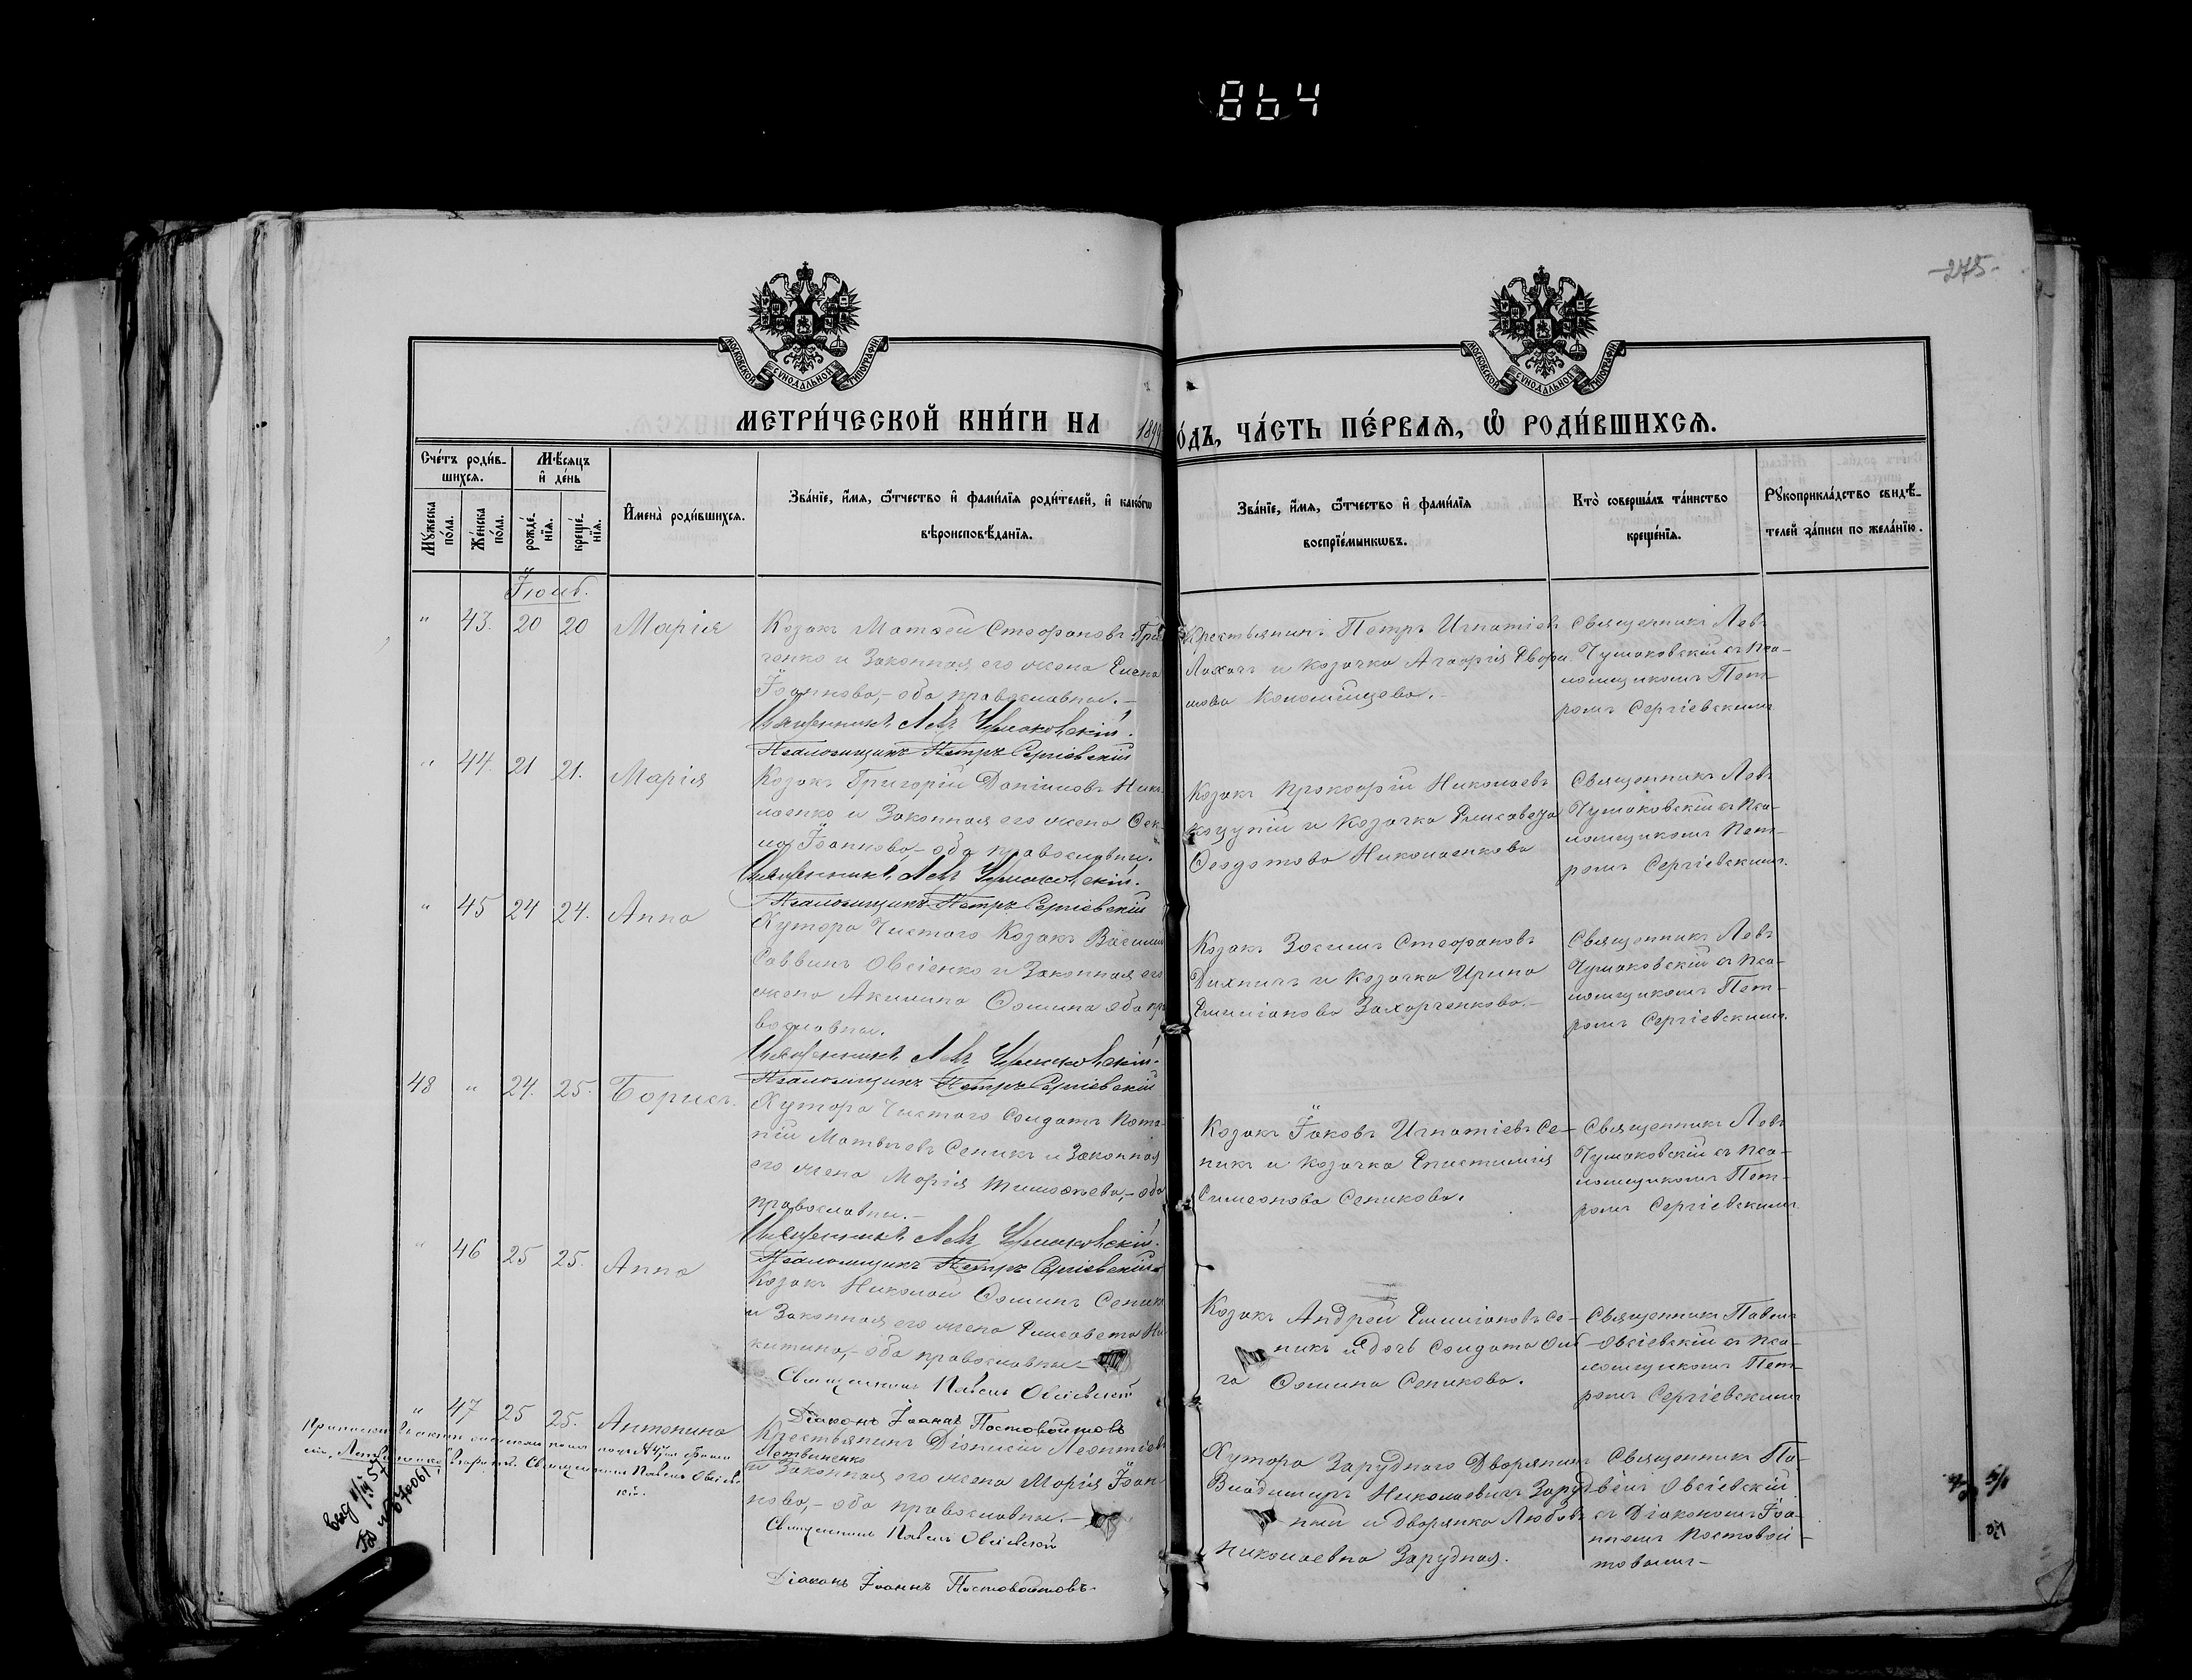 864
-275-
МОСКОВСКОЙ СѴНОДАЛЬНОЙ ТИПОГРАФІИ
МОСКОВСКОЙ СѴНОДАЛЬНОЙ ТИПОГРАФІИ
МЕТРИ́ЧЕСКОЙ КНИ́ГИ НА 189
О́ДЪ, ЧА́СТЬ ПЕ́РВАЯ, Ѽ РОДИ́ВШИХСЯ.
Сче́тъ роди́в-
шихся.
Мѣ́сяцъ
и҆ де́нь
Мꙋ́жеска
по́ла.
Же́нска
по́ла.
рожде́-
нїя.
креще́-
нїя.
И҆мена̀ роди́вшихся.
Зва́нїе, и҆́мя, ѻ҆́тчество и҆ фами́лїя роди́телей, и҆ како́гѡ
вѣроисповѣ́данїя.
Зва́нїе, и҆́мя, ѻ҆́тчество и҆ фами́лїя
воспрїе́мникѡвъ.
Кто̀ соверша́лъ та́инство
креще́нїя.
Рꙋкоприкла́дство свидѣ́-
телей за́писи по жела́нїю.
Іюнь.
" 43. 20 20 Марія
Козакъ Матѳей Стефановъ Гри
ченко и Законная его жена Елена
Іоаннова,- оба православны.-
Священникъ Левъ Чумаковскій.
Псаломщикъ Петръ Сергіевскій
Крестьянинъ Петръ Игнатіевъ
Лохачъ и козачка Агафія
мова Коломійцева.-
Священникъ Левъ
Чумаковскій съ Пса-
ломщикомъ Пет-
ромъ Сергіевскимъ
" 44. 21 21. Марія
Козакъ Григорій Даніиловъ Нико
лаенко и Законная его жена Ѳек
ла Іоаннова,- оба православны.
Священникъ Левъ Чумаковскій.
Псаломщикъ Петръ Сергіевскій
Козакъ Прокофій Николаевъ
и Козачка Елисавета
Ѳеодотова Николаенкова
Священникъ Левъ
Чумаковскій съ Пса-
ломщикомъ Пет-
ромъ Сергіевскимъ.
" 45 24 24. Анна
Хутора Чистаго Козакъ Василій
Саввинъ Овсіенко и Законная его
жена Акилина Ѳомина оба пра
вославны.
Священникъ Левъ Чумаковскій.
Псаломщикъ Петръ Сергіевскій
Козакъ Зосимъ Стефановъ
Дихничъ и Козачка Ирина
Емиліанова Захарченкова.-
Священникъ Левъ
Чумаковскій съ Пса-
ломщикомъ Пет-
ромъ Сергіевскимъ.
48 " 24. 25. Борисъ.
Хутора Чистаго Солдатъ Пота
пій Матвѣевъ Сеникъ и Законная
его жена Марія Тимоѳеева,- оба
православны.-
Священникъ Левъ Чумаковскій.
Псаломщикъ Петръ Сергіевскій
Козакъ Іаковъ Игнатіевъ Се-
никъ и козачка Епистимія
Симеонова Сеникова.
Священникъ Левъ
Чумаковскій съ Пса-
ломщикомъ Пет-
ромъ Сергіевскимъ
" 46 25 25. Анна
Козакъ Николай Ѳоминъ Сеникъ
и Законная его жена Елисавета Ни
китина,- оба православны.-
Священникъ Павелъ Овсіевскій
Діаконъ Іоаннъ Постовойтовъ
Козакъ Андрей Емиліановъ Се-
никъ и дочь Солдата Оль
га Ѳомина Сеникова.
Священникъ Павелъ
Овсіевскій съ Пса-
ломщикомъ Пет-
ромъ Сергіевскимъ
" 47 25 25. Антонина
Крестьянинъ Діонисій Леонтіевъ
Литвиненко
и Законная его жена Марія Іоан
нова,- оба православны.-
Священникъ Павелъ Овсіевскій
Діаконъ Іоаннъ Постовойтовъ.
Хутора Заруднаго Дворянинъ
Владимиръ Николаевичъ Заруд
ный и дворянка Любовь
Николаевна Зарудная.
Священникъ Па-
велъ Овсіевскій
съ Діакономъ Іоа-
нномъ Постовой-
товымъ-
Священникъ Павелъ Овсіев
кій.